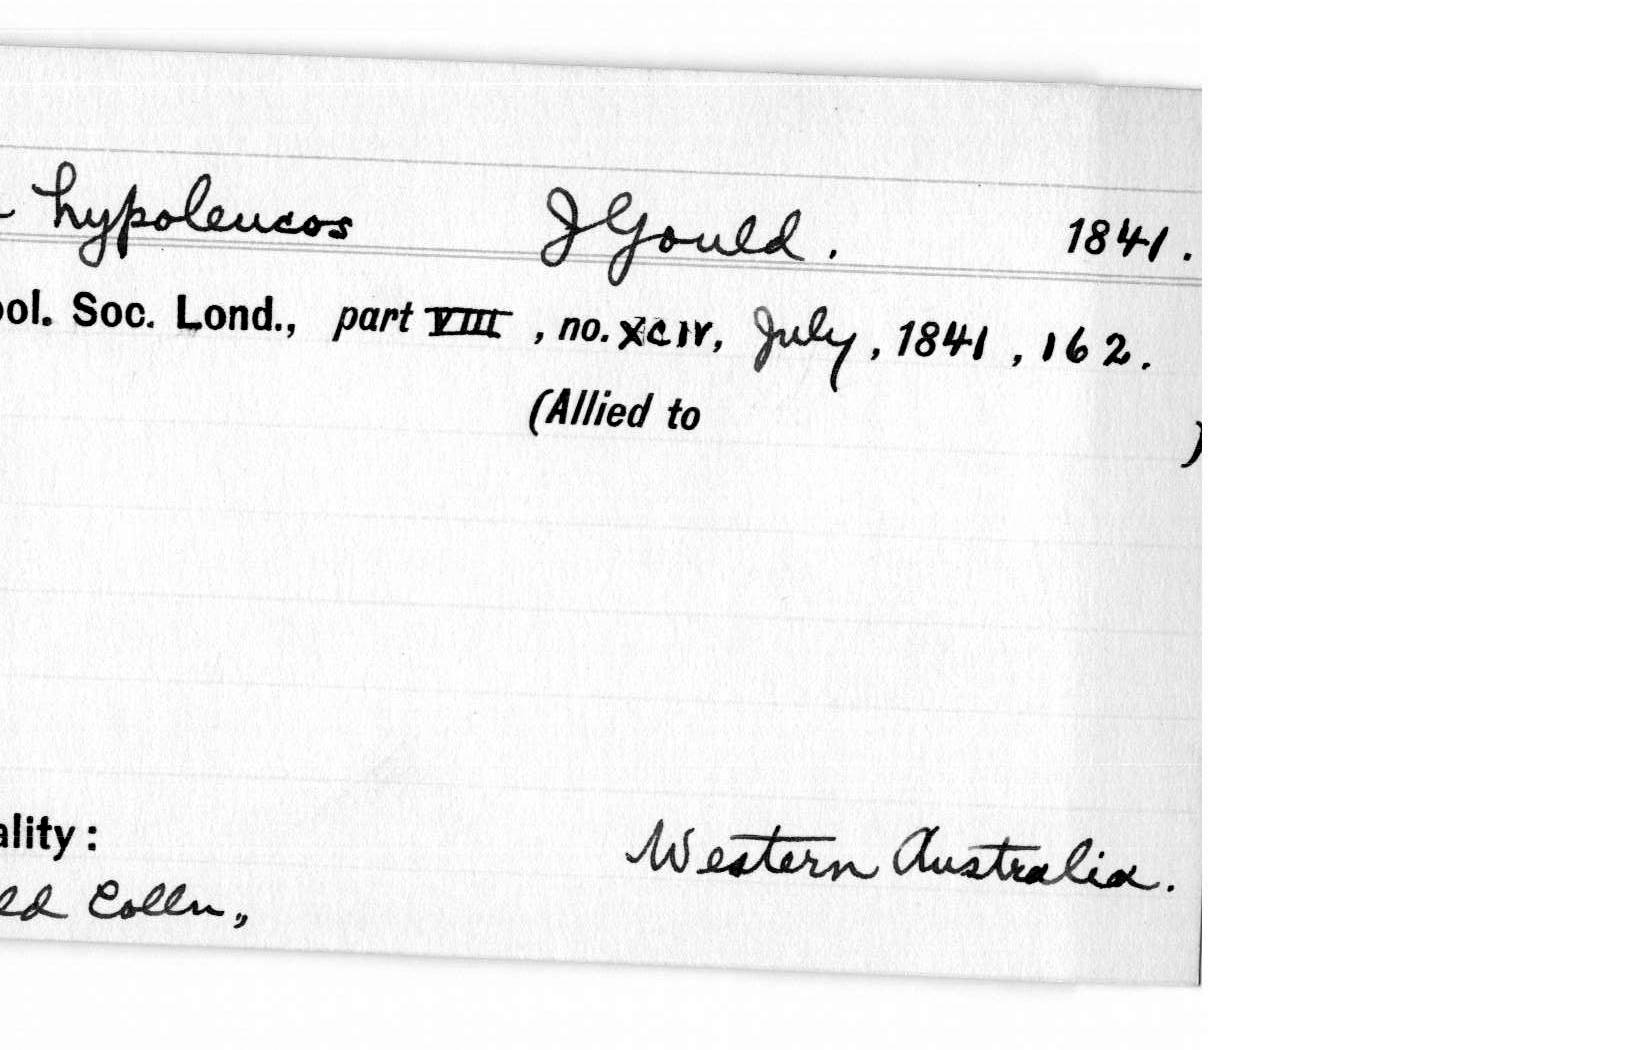 hypoleucos J Gould. 1841.
ool. Soc. Lond., part VIII, no. XCIV, July, 1841, 162.
(Allied to )
ality: Western Australia.
ld Colln,,